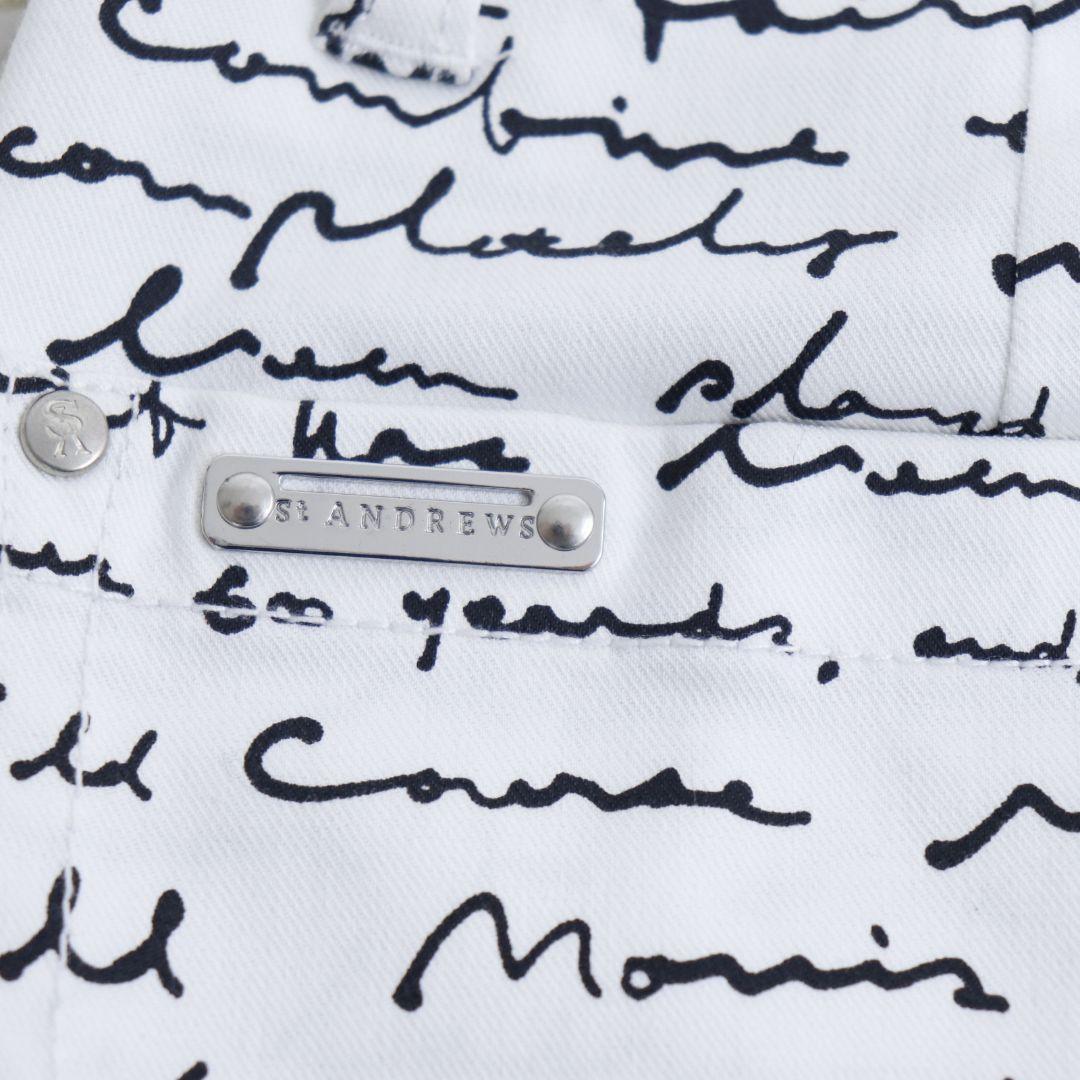 Combine
completely
been played
it has been
St ANDREWS
600 years, and
Old Course
Old Morris